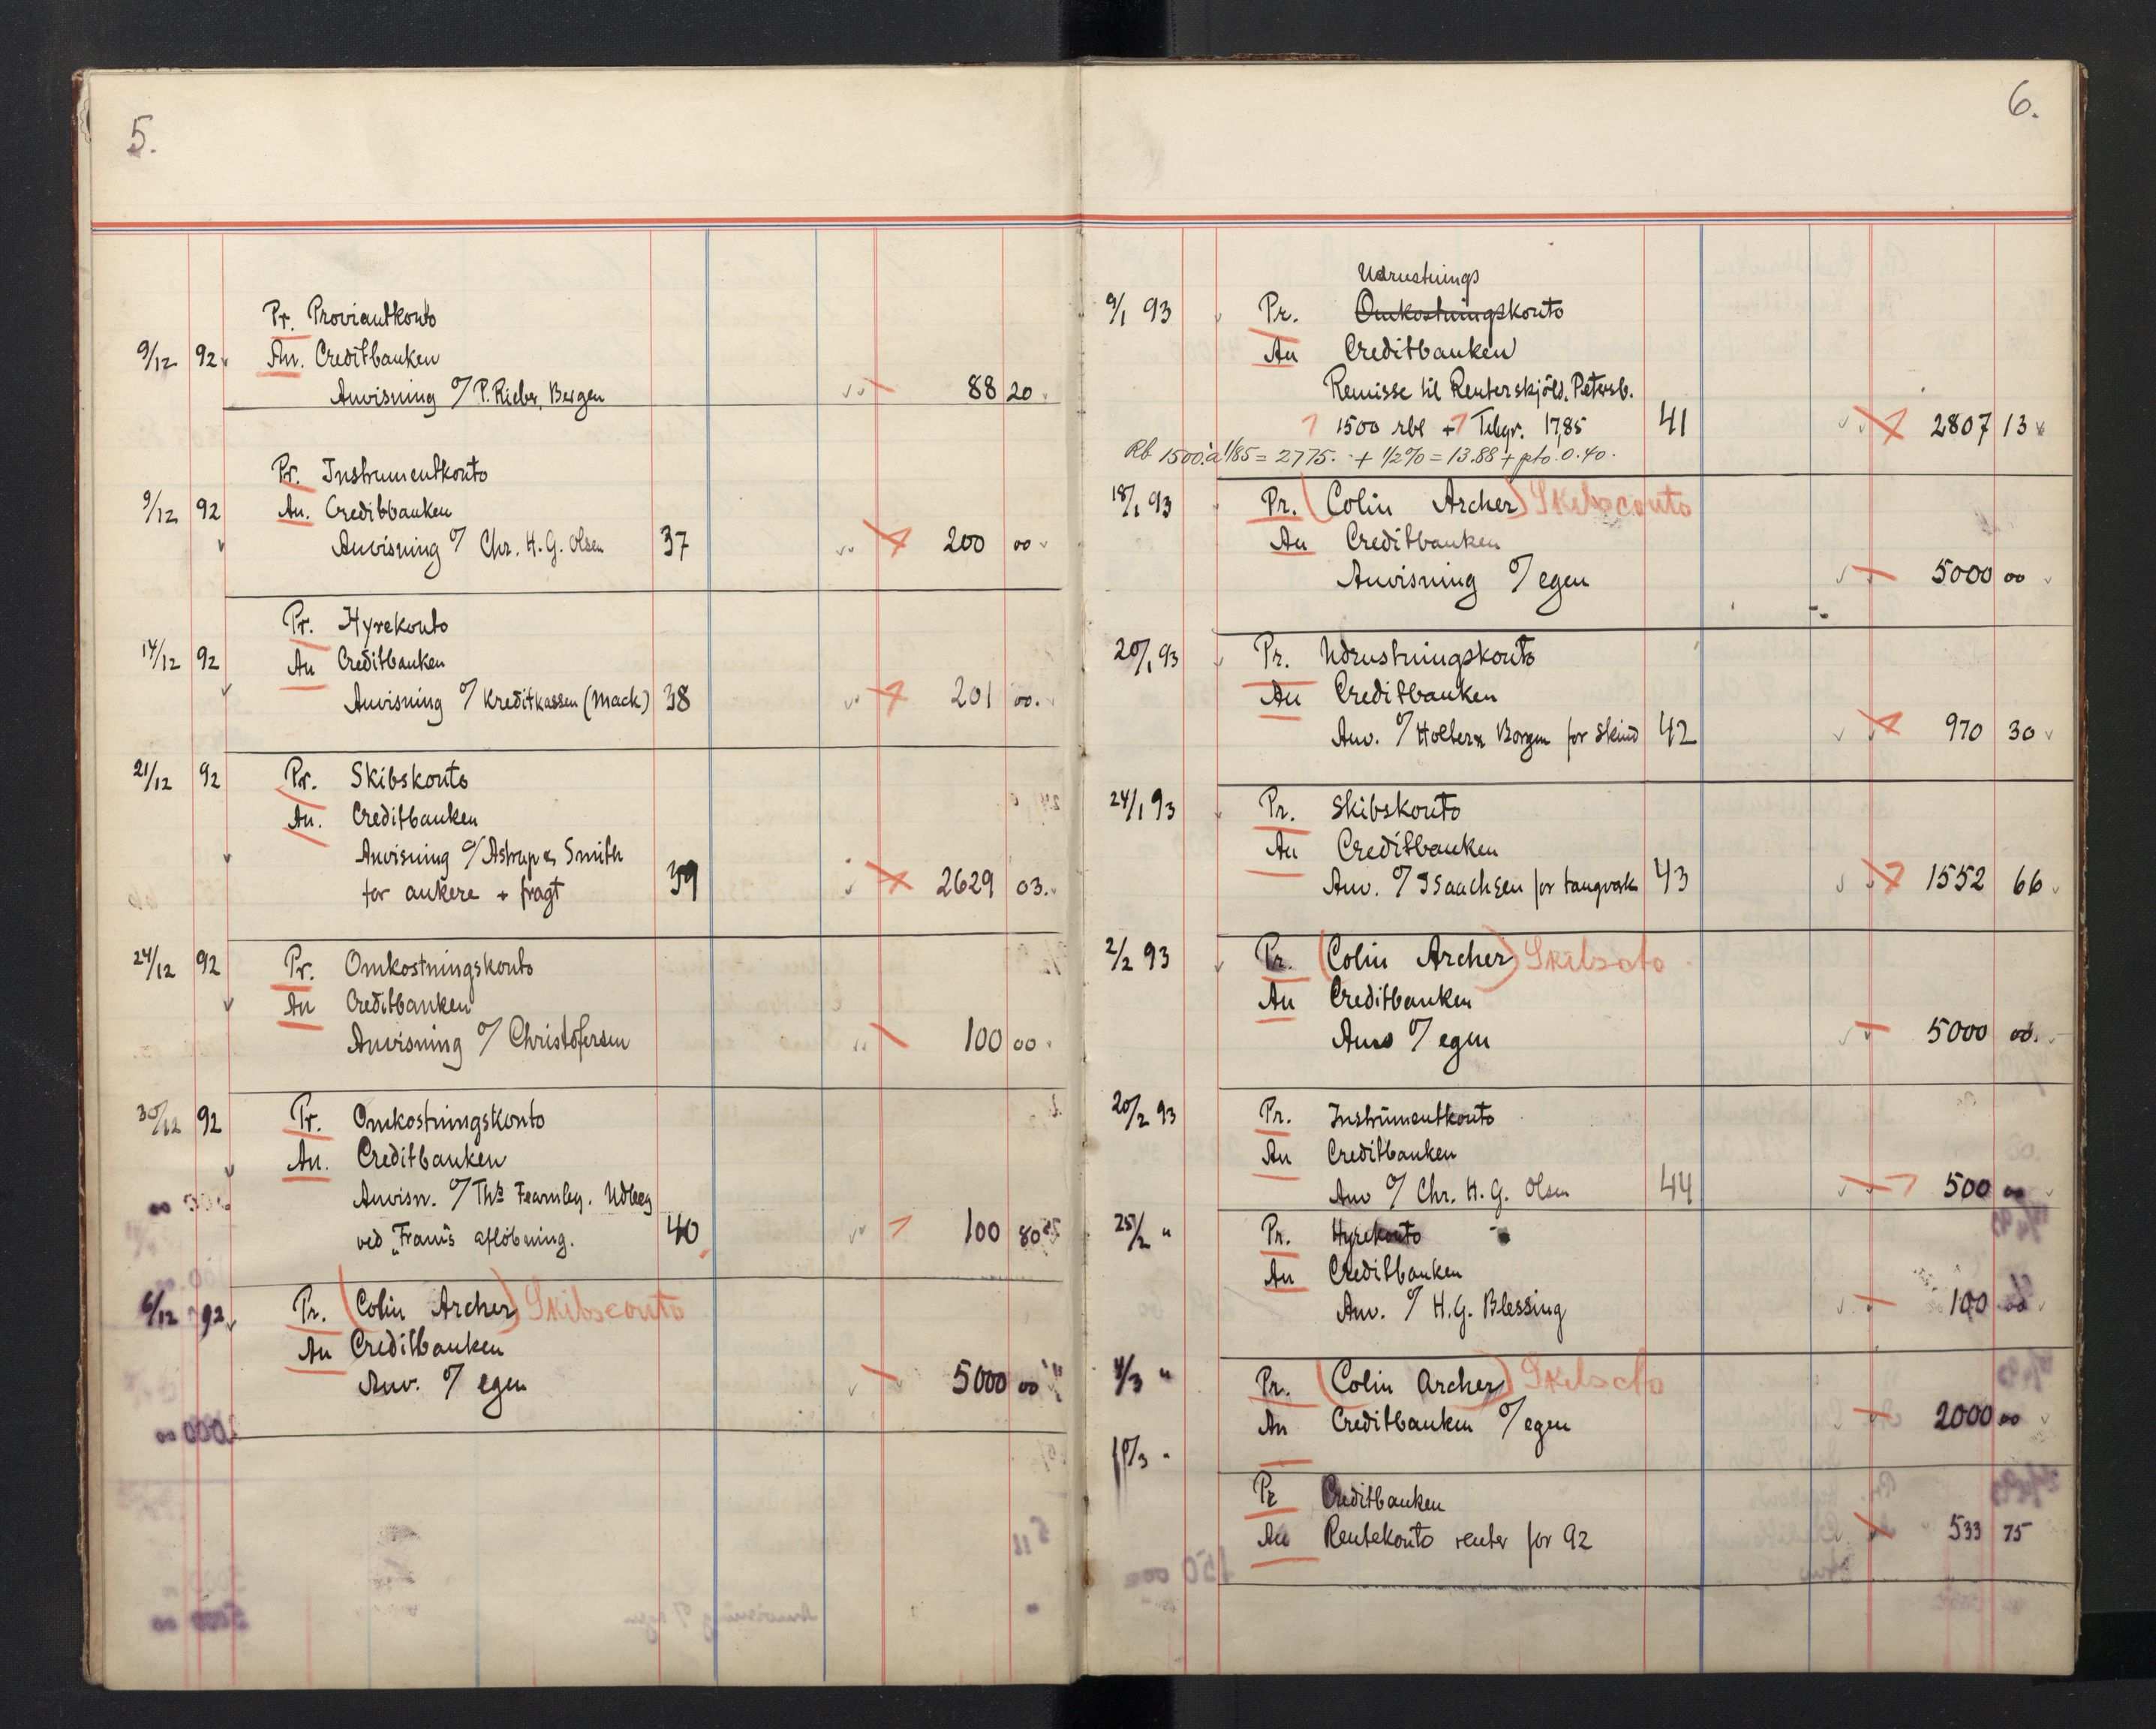 5.
Pr. Proviantkonto
9/12 92 An. Creditbanken
Anvisning % P. Rieber, Bergen 88 20
Pr. Instrumentkonto
9/12 92 An. Creditbanken
Anvisning % Chr. H. G. Olsen 37 200 00
Pr. Hyrekonto
14/12 92 An Creditbanken
Anvisning % Kreditkassen (Mack) 38 201 00.
21/12 92 Pr. Skibskonto
An. Creditbanken
Anvisning % Astrup & Smith
for ankere + fragt 39 2629 03.
24/12 92 Pr. Omkostningskonto
An Creditbanken
Anvisning % Christofersen 100 00
30/12 92 Pr. Omkostningskonto
An. Creditbanken
Anvisn. % Ths Fearnley. Udlæg
ved "Fram"s afløbning. 40 100 80
6/12 92 Pr. (Colin Archer) Skibsconto
An Creditbanken
Anv. % egen 5000 00
6.
Udrustnings
9/1 93 Pr. Omkostningskonto
An Creditbanken
Remisse til Renterskjöld. Petersb.
1500 rbl + Telegr. 17,85 41 2807 13
Rb 1500. à 1/85 = 2775. + 1/2% = 13.88 + pto. 0.40.
18/1 93 Pr. (Colin Archer) Skibsconto
An Creditbanken
Anvisning % egen 5000 00
20/1 93 Pr. Udrustningskonto
An Creditbanken
Anv. % Holter & Borgen for skind 42 970 30
24/1 93 Pr. Skibskonto
An Creditbanken
Anv. % Isaachsen for taugværk 43 1552 66
2/2 93 Pr. (Colin Archer) Skibscto
An Creditbanken
Anv % egen 5000 00.
20/2 93 Pr. Instrumentkonto
An Creditbanken
Anv % Chr. H. G. Olsen 44 500 00
25/2 " Pr. Hyrekonto
An Creditbanken
Anv. % H. G. Blessing 100 00
4/3 " Pr. (Colin Archer) Skibscto
An Creditbanken % egen 2000 00
Pr Creditbanken
An Rentekonto renter for 92 533 75